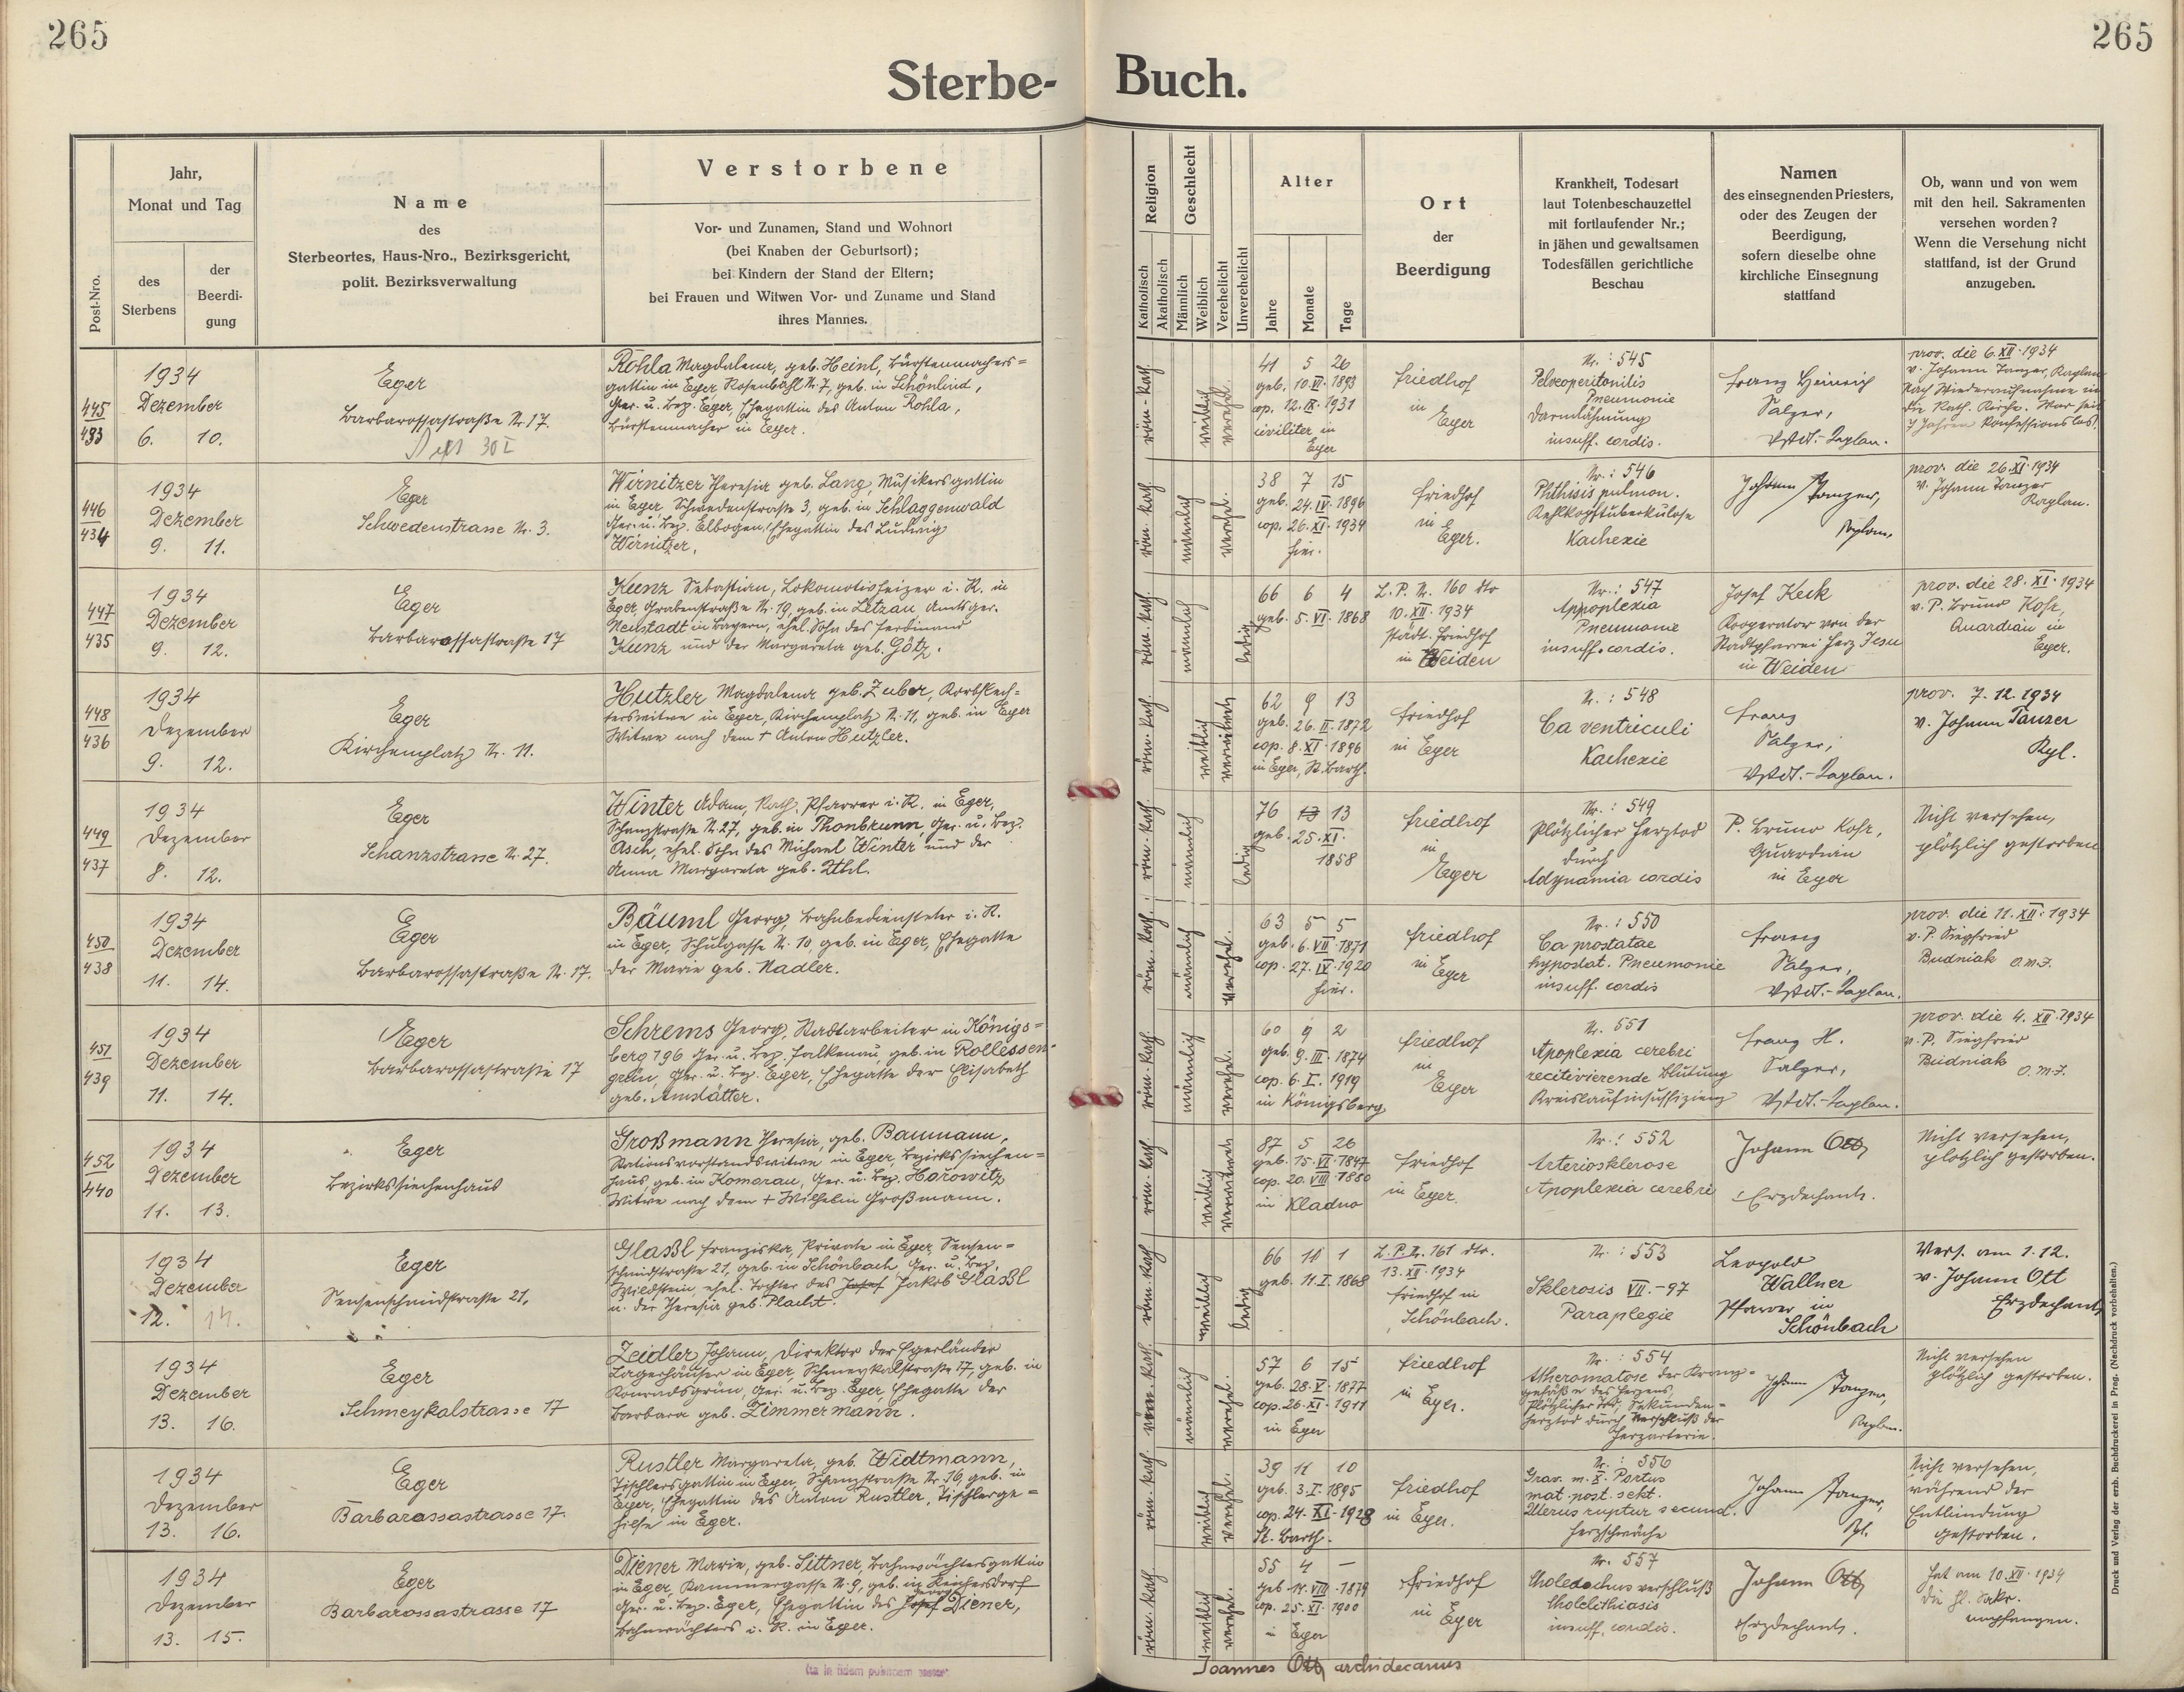 265
265
Sterbe-Buch.
Post-Nro.
Jahr,
Monat und Tag
des
Sterbens
der
Beerdi-
gung
Name
des
Sterbeortes, Haus-Nro., Bezirksgericht,
polit. Bezirksverwaltung
Verstorbene
Vor- und Zunamen, Stand und Wohnort
(bei Knaben der Geburtsort);
bei Kindern der Stand der Eltern;
bei Frauen und Witwen Vor- und Zuname und Stand
ihres Mannes.
Religion
Katholisch
Akatholisch
Geschlecht
Männlich
Weiblich
Verehelicht
Unverehelicht
Alter
Jahre
Monate
Tage
Ort
der
Beerdigung
Krankheit, Todesart
laut Totenbeschauzettel
mit fortlaufender Nr.;
in jähen und gewaltsamen
Todesfällen gerichtliche
Beschau
Namen
des einsegnenden Priesters,
oder des Zeugen der
Beerdigung,
sofern dieselbe ohne
kirchliche Einsegnung
stattfand
Ob, wann und von wem
mit den heil. Sakramenten
versehen worden?
Wenn die Versehung nicht
stattfand, ist der Grund
anzugeben.
445
433
1934
Dezember
6. 10.
Eger
Barbarossastraße Nr. 17.
30 I
Rohla Magdalena, geb. Heinl, Bürstenmachers=
gattin in Eger, Rosenbühl Nr. 7, geb. in Schönlind,
Ger. u. Bez. Eger, Ehegattin des Anton Rohla,
Bürstenmacher in Eger.
röm. kath.
weiblich
verehel.
41 5 26
geb. 10. VI. 1893
cop. 12. IX. 1931
civiliter in
Eger
Friedhof
in
Eger
Nr.: 545
Pelveoperitonitis
Pneumonie
Darmlähmung
insuff. cordis.
Franz Heinrich
Salzer,
Kaplan.
prov. die 6. XII. 1934
v. Johann Tanzer, Kaplan
Nach Wiederaufnahme in
die Kath. Kirche. War seit
7 Jahren konfessionslos!
446
434
1934
Dezember
9. 11.
Eger
Schwedenstrasse Nr. 3.
Wirnitzer Theresia geb. Lang, Musikersgattin
in Eger, Schwedenstraße 3, geb. in Schlaggenwald
Ger. u. Bez. Elbogen, Ehegattin des Ludwig
Wirnitzer.
röm. kath.
männlich
verehel.
38 7 15
geb. 24. IV. 1896
cop. 26. XI. 1934
hier.
Friedhof
in
Eger.
Nr.: 546
Phthisis pulmon.
Kehlkopftuberkulose
Kachexie
Johann Tanzer,
Kaplan.
prov. die 26. XI. 1934
v. Johann Tanzer
Kaplan.
447
435
1934
Dezember
9. 12.
Eger
Barbarossastraße 17
Kunz Sebastian, Lokomotivheizer i. R. in
Eger, Grabenstraße Nr. 19, geb. in Letzau Amtsger.
Neustadt in Bayern, ehel. Sohn des Ferdinand
Kunz und der Margareta geb. Götz.
röm. kath.
männlich
ledig
66 6 4
geb. 5. VI. 1868
L. P. Nr. 160 dto
10. XII. 1934
städt. Friedhof
in Weiden
Nr.: 547
Appoplexia
Pneumonie
insuff. cordis.
Josef Keck
Kooperator von der
Stadtpfarrei Herz Jesu
in Weiden
prov. die 28. XI. 1934
v. P. Bruno Kohr,
Quardian in
Eger.
448
436
1934
Dezember
9. 12.
Eger
Kirchenplatz Nr. 11.
Hutzler Magdalena geb. Zuber, Korbflech=
terswitwe in Eger, Kirchenplatz Nr. 11, geb. in Eger
Witwe nach dem † Anton Hutzler.
röm. kath.
weiblich
verwitwet
62 9 13
geb. 26. II. 1872
cop. 8. XI. 1896
in Eger, St. Barth.
Friedhof
in Eger
Nr.: 548
Ca ventriculi
Kachexie
Franz
Salzer,
Kaplan.
prov. 7. 12. 1934
v. Johann Tanzer
Kpl.
449
437
1934
Dezember
8. 12.
Eger
Schanzstrasse Nr. 27.
Winter Adam, Kath. Pfarrer i. R. in Eger,
Schanzstraße Nr. 27, geb. in Thonbrunn, Ger. u. Bez.
Asch, ehel. Sohn des Michael Winter und der
Anna Margareta geb.
röm. kath.
männlich
ledig
76 13 13
geb. 25. XI.
1858
Friedhof
in
Eger
Nr.: 549
Plötzlicher Herztod
durch
Adynamia cordis
P. Bruno Kohr,
Guardian
in Eger
Nicht versehen,
plötzlich gestorben
450
438
1934
Dezember
11. 14.
Eger
Barbarossastraße Nr. 17.
Bäuml Georg, Bahnbediensteter i. R.
in Eger, Schulgasse Nr. 10, geb. in Eger, Ehegatte
der Marie geb. Nadler.
röm. kath.
männlich
verehel.
63 5 5
geb. 6. VII. 1871
cop. 27. IV. 1920
hier.
Friedhof
in
Eger
Nr.: 550
Ca prostatae
hypostat. Pneumonie
insuff. cordis
Franz
Salzer,
Kaplan.
prov. die 11. XII. 1934
v. P. Siegfried
Budniak O.M.F.
451
439
1934
Dezember
11. 14.
Eger
Barbarossastraße 17
Schrems Georg, Stadtarbeiter in Königs=
berg 196 Ger. u. Bez. Falkenau, geb. in Rollessen-
grün, Ger. u. Bez. Eger, Ehegatte der Elisabeth
geb. Amstätter.
röm. kath.
männlich
verehel.
60 9 2
geb. 9. III. 1874
cop. 6. I. 1919
in Königsberg
Friedhof
in
Eger
Nr. 551
Apoplexia cerebri
recitivierende Blutung
Kreislaufinsuffizienz
Franz H.
Salzer,
Kaplan.
prov. die 4. XII. 1934
v. P. Siegfried
Budniak
O.M.F.
452
440
1934
Dezember
11. 13.
Eger
Bezirkssiechenhaus
Großmann Theresia, geb. Baumann,
Stationsvorstandswitwe in Eger, Bezirkssiechen=
haus geb. in Komorau, Ger. u. Bez. Horowitz
Witwe nach dem † Wilhelm Großmann.
röm. kath
weiblich
verwitwet
87 5 26
geb. 15. VI. 1847
cop. 20. VIII. 1880
in Kladno
Friedhof
in Eger.
Nr.: 552
Arteriosklerose
Apoplexia cerebri
Johann Ott
Erzdechant.
Nicht versehen,
plötzlich gestorben.
1934
Dezember
12. 14.
Eger
Sensenschmidstraße 21,
Glaßl Franziska, Private in Eger, Sensen=
schmidstraße 21, geb. in Schönbach Ger. u. Bez.
Wildstein, ehel. Tochter des Josef Jakob Glaßl
u. der Theresia geb. Placht.
röm. kath
weiblich
ledig
66 11 1
geb. 11. I. 1868
L. P. Nr. 161 dto.
13. XII. 1934
Friedhof in
Schönbach.
Nr.: 553
Sklerosis VII.-97
Paraplegie
Leopold
Wallner
Pfarrer in
Schönbach
Vers. am 1. 12.
v. Johann Ott
Erzdechant
1934
Dezember
13. 16.
Eger
Schmeykalstrasse 17
Zeidler Johann, Direktor der Egerländer
Lagerhäuser in Eger, Schmeykalstraße 17, geb. in
Konradsgrün, Ger. u. Bez. Eger Ehegatte der
Barbara geb. Zimmermann.
röm. kath.
männlich
verehel.
57 6 15
geb. 28. V. 1877
cop. 26. XI. 1911
in Eger
Friedhof
in Eger.
Nr.: 554
Atheromatose der Kranz=
gefäße des Herzens,
Plötzlicher Tod, Sekunden=
herztod durch Verschluß der
Herzarterie.
Johann Tanzer,
Kaplan.
Nicht versehen
plötzlich gestorben.
1934
Dezember
13. 16.
Eger
Barbarossastrasse 17.
Rustler Margareta, geb. Widtmann,
Tischlersgattin in Eger, Schanzstraße Nr. 16, geb. in
Eger, Ehegattin des Anton Rustler, Tischlerge=
hilfe in Eger.
röm. kath.
weiblich
verehel.
39 11 10
geb. 3. I. 1895
cop. 24. XI. 1928
St. Barth.
Friedhof
in Eger.
Nr.: 556
Grav. m. X. Partus
mat. post. sekt.
Uterus ruptur secund.
Herzschwäche
Johann Tanzer,
Kpl.
Nicht versehen,
während der
Entbindung
gestorben.
1934
Dezember
13. 15.
Eger
Barbarossastrasse 17
Diener Marie, geb. Sittner, Bahnwächtersgattin
in Eger, Kammergasse Nr. 9, geb. in Reichersdorf
Georg
Ger. u. Bez. Eger, Ehegattin des Josef Diener,
Bahnwächters i. R. in Eger.
röm. kath
weiblich
verehel.
55 4 —
geb. 14. VIII. 1879
cop. 25. XI. 1900
in Eger
Friedhof
in
Eger
Nr. 557
Choledochusverschluß
Cholelithiasis
insuff. cordis.
Johann Ott
Erzdechant.
Hat am 10. XII. 1934
die hl. Sakr.
empfangen.
Ita in fidem publicam testor:
Joannes Ott archidecanus
Druck und Verlag der erzb. Buchdruckerei in Prag. (Nachdruck vorbehalten.)